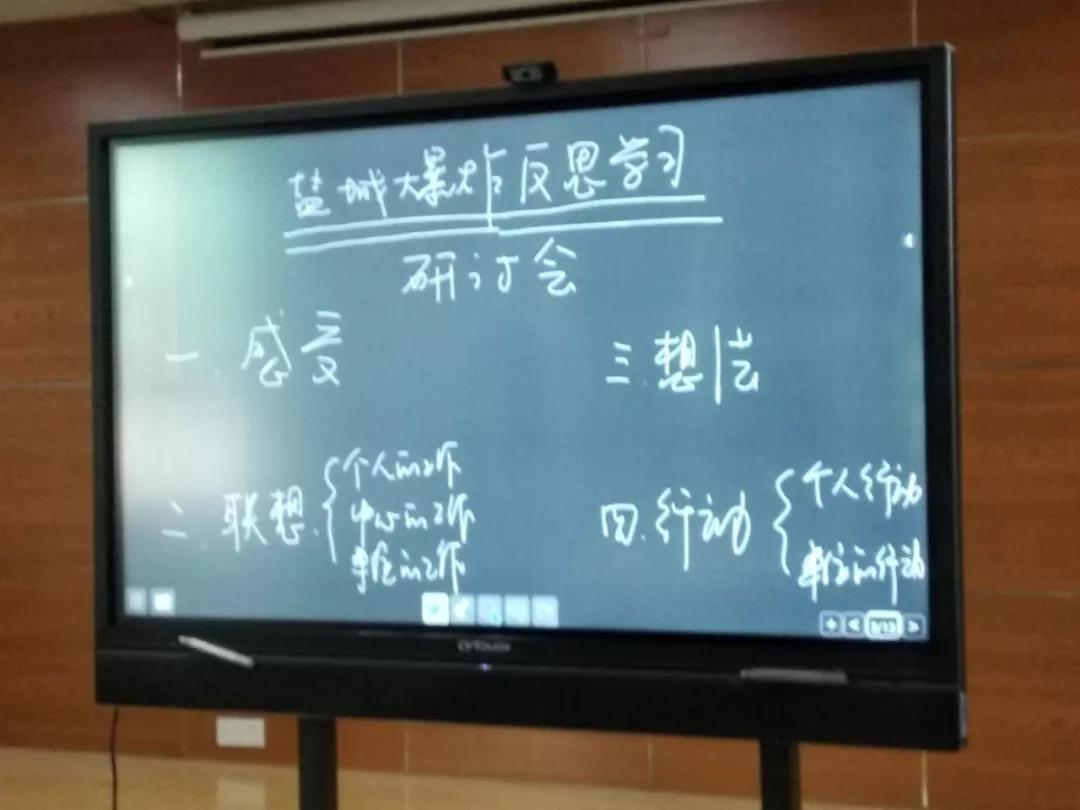 盐城大爆炸反思学习
研讨会
一、感受
二、联想
个人的工作
中心的工作
单位的工作
三、想法
四、行动
个人行动
单位的行动